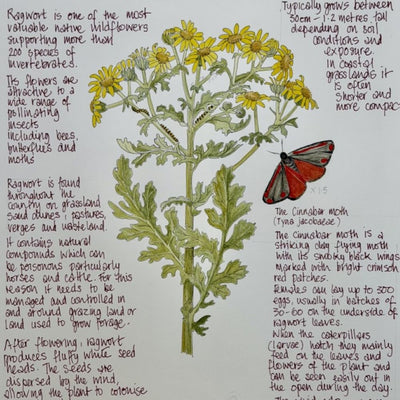 Ragwort is one of the most
valuable native wildflowers
supporting more than
200 species of
invertebrates.
Its flowers are
attractive to a
wide range of
pollinating
insects
including bees,
butterflies and
moths
Ragwort is found
throughout the
country on grassland
sand dunes, pastures,
verges and wasteland.
It contains natural
compounds which can
be poisonous particularly
horses and cattle. For this
reason it needs to be
managed and controlled in
and around grazing land or
land used to grow forage.
After flowering, ragwort
produces fluffy white seed
heads. The seeds are
dispersed by the wind,
allowing the plant to colonise
Typically grows between
30cm - 1.2 metres tall
depending on soil
conditions and
exposure.
In coastal
grasslands it
is often
shorter and
more compact
x 1.5
The Cinnabar moth
(Tyria jacobaeae)
The Cinnabar moth is a
striking day flying moth
with its smoky black wings
marked with bright crimson
red patches.
Females can lay up to 300
eggs, usually in batches of
30-60 on the underside of
ragwort leaves.
When the caterpillars
(larvae) hatch they mainly
feed on the leaves and
flowers of the plant and can
be seen easily out in
the open during the day.